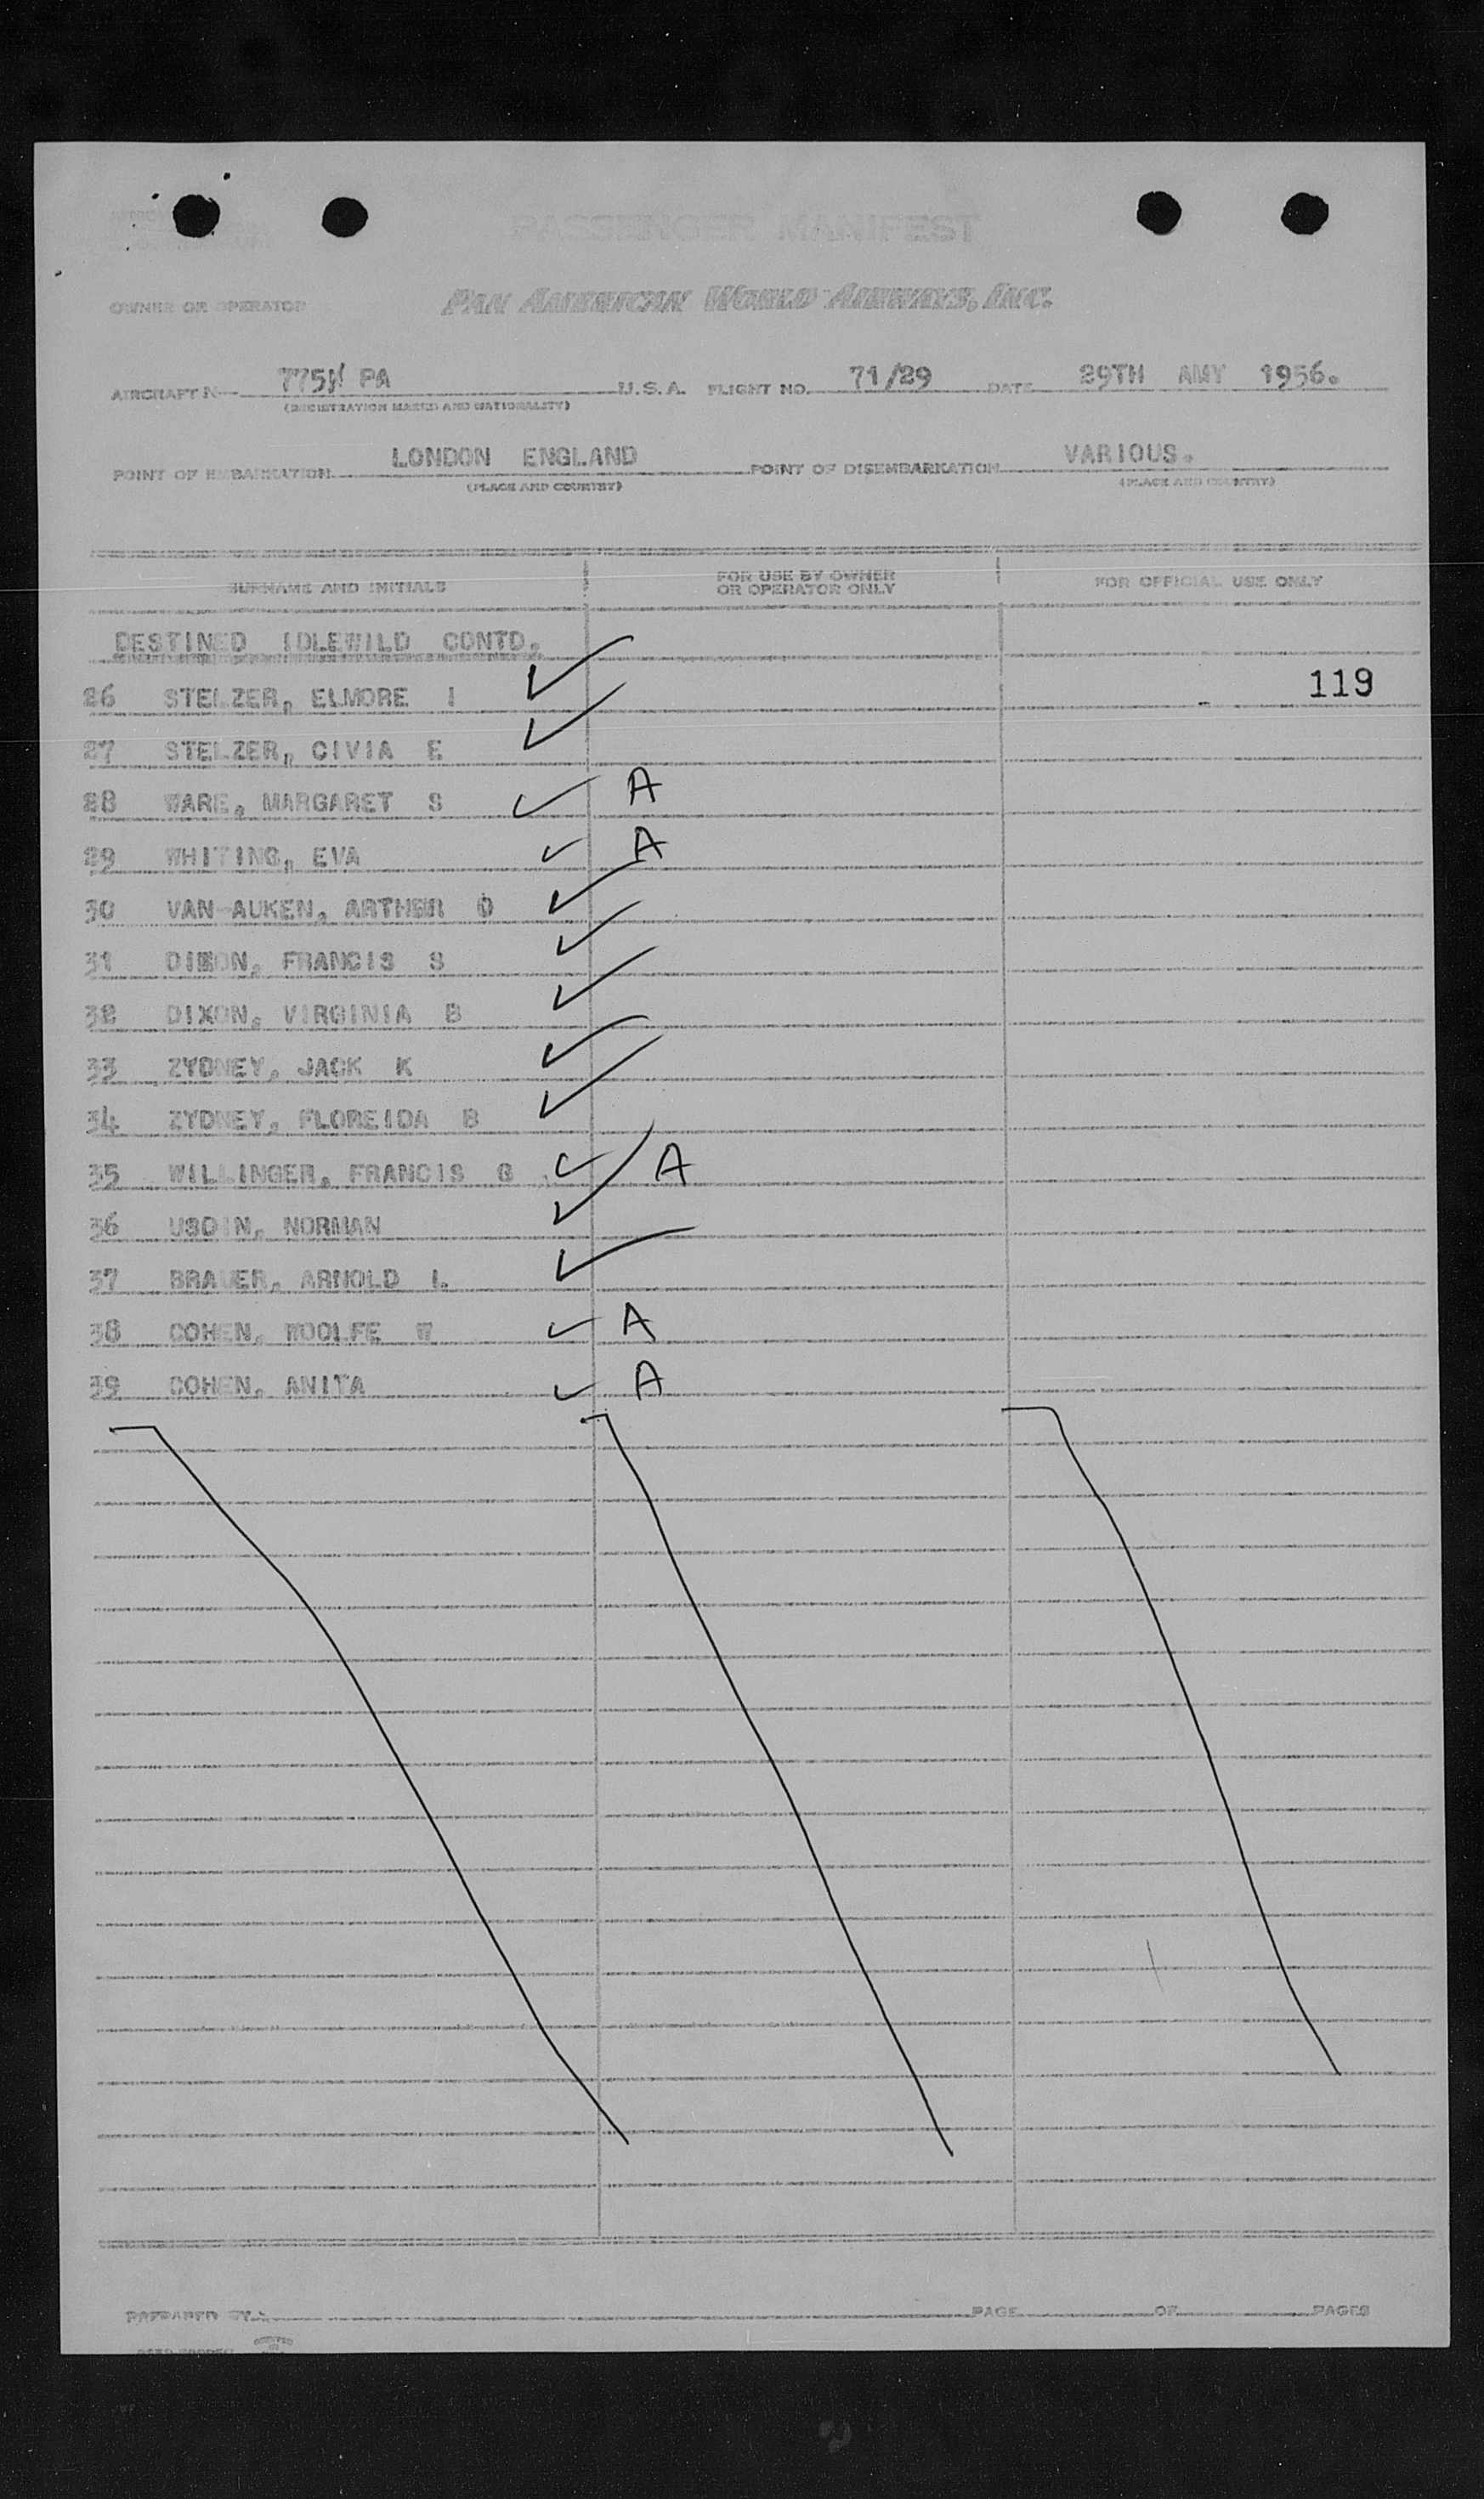 PASSENGER MANIFEST
OWNER OR OPERATOR PAN AMERICAN WORLD AIRWAYS, INC.
AIRCRAFT N 775 PA U.S.A. FLIGHT NO. 71/29 DATE 29TH AMY 1956.
(REGISTRATION MARKS AND NATIONALITY)
POINT OF EMBARKATION LONDON ENGLAND POINT OF DISEMBARKATION VARIOUS.
(PLACE AND COUNTRY) (PLACE AND COUNTRY)
SURNAME AND INITIALS FOR USE BY OWNER OR OPERATOR ONLY FOR OFFICIAL USE ONLY
DESTINED IDLEWILD CONTD.
26 STELZER, ELMORE I ✓ 119
27 STELZER, CIVIA E ✓
28 WARE, MARGARET S ✓ A
29 WHITING, EVA ✓ A
30 VAN-AUKEN, ARTHER O ✓
31 DIXON, FRANCIS S ✓
32 DIXON, VIRGINIA B ✓
33 ZYDNEY, JACK K ✓
34 ZYDNEY, FLOREIDA B ✓
35 WILLINGER, FRANCIS G ✓ A
36 USDIN, NORMAN ✓
37 BRAUER, ARNOLD L ✓
38 COHEN, WOOLFE W ✓ A
39 COHEN, ANITA ✓ A
PREPARED BY PAGE OF PAGES